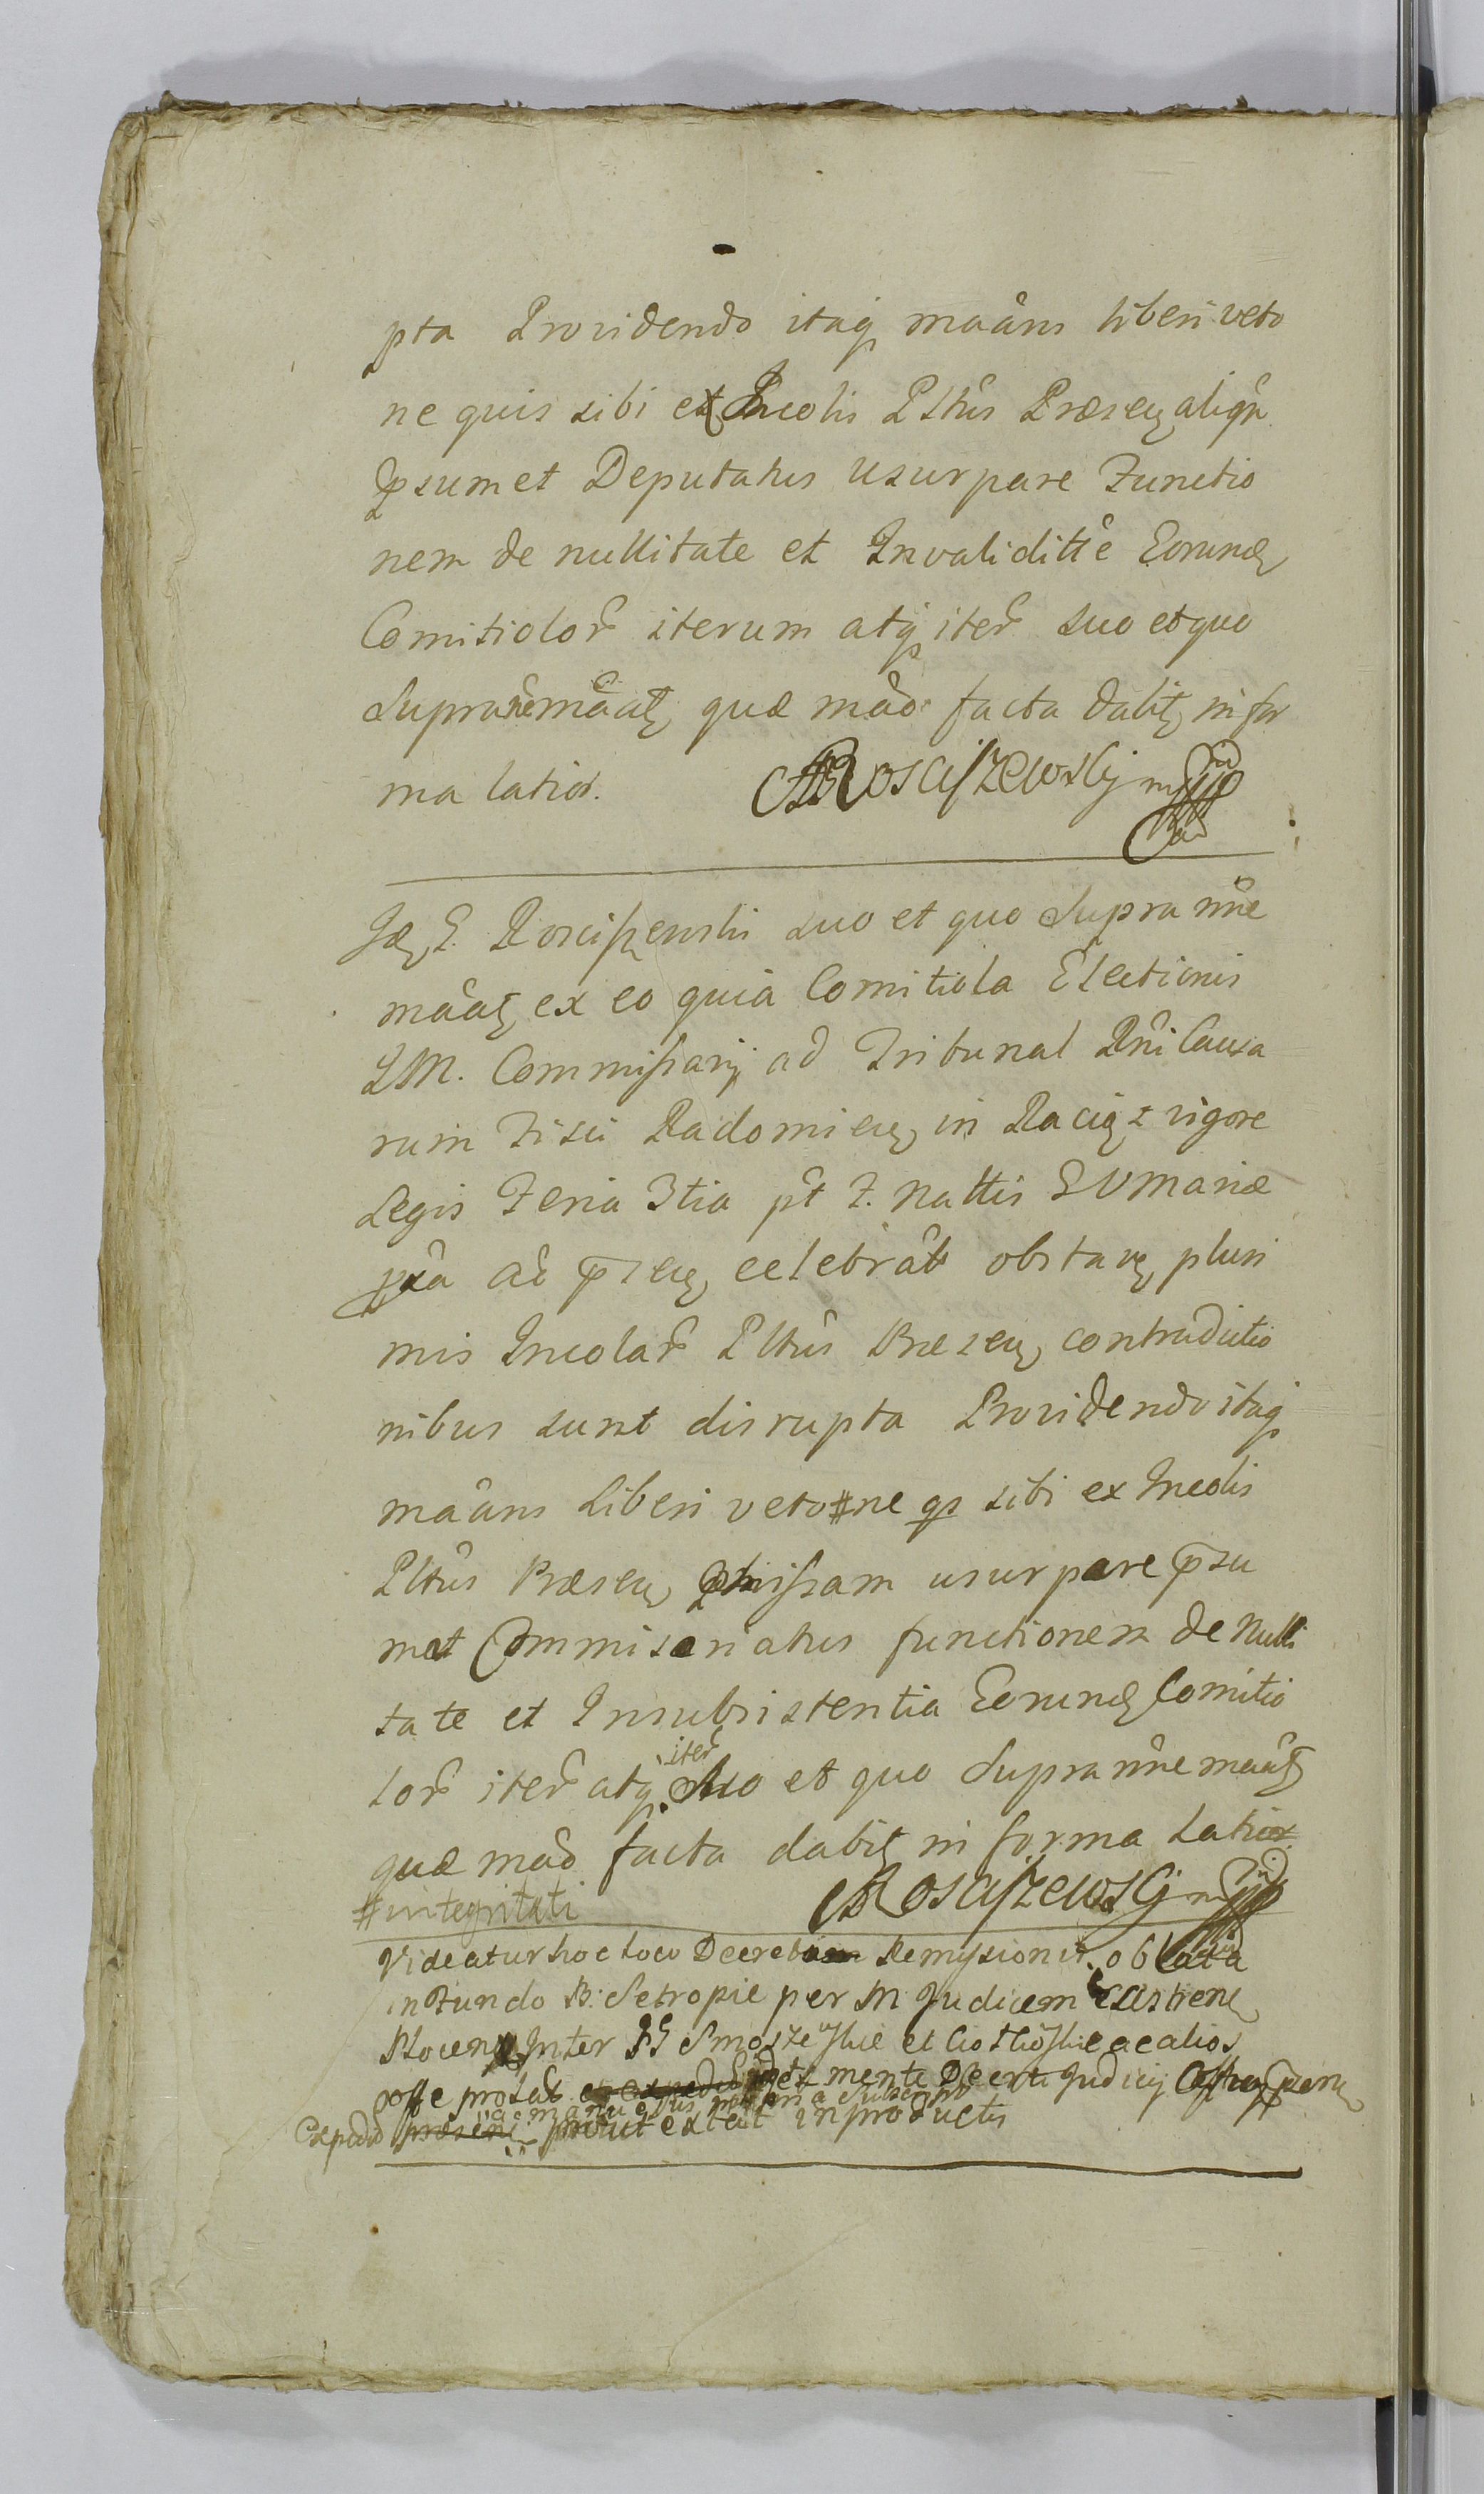 pta Providendo itaq maans liberi veto
ne quis sibi ex Incolis Pltus Præsen aliqn
psumet Deputatus Usurpare Functio
nem de nullitate et Invaliditte Eorund
Comitiolor iterum atq iter suo et quo
Supra nne maat quæ mad facta dabit in for
ma latior. Rosciszewskj mpp
Id E. Rosciszewski suo et quo Supra nne
maat ex eo quia Comitiola Electionis
M. Commissarij ad Tribunal Rni Causa
rum Fisci Radomien in Raciąz vigore
Legis Feria 3tia pt F. Nattis Mariæ
pxa ad psen celebrat obstan pluri
mis Incolar Pltus Præsen contradictio
nibus sunt disrupta Providendo itaq
maans Liberi veto # ne qs sibi ex Incolis
Pltus Præsen usurpare psu
met Commisariatus functionem de Nulli
tate et Insubsistentia Eorund Comitio
lor iter atq iter suo et quo Supra nne maat
quæ mad facta dabit in forma Latior
# integritati Rosciszewskj mpp
Videatur hoc loco Decretum Remysionis oblata
in Fundo B: Setropie per M Judicem Castren
Plocen Inter et ac alios
posse Decreti Judicij
a manu
Expedd præsen prout extat in productis